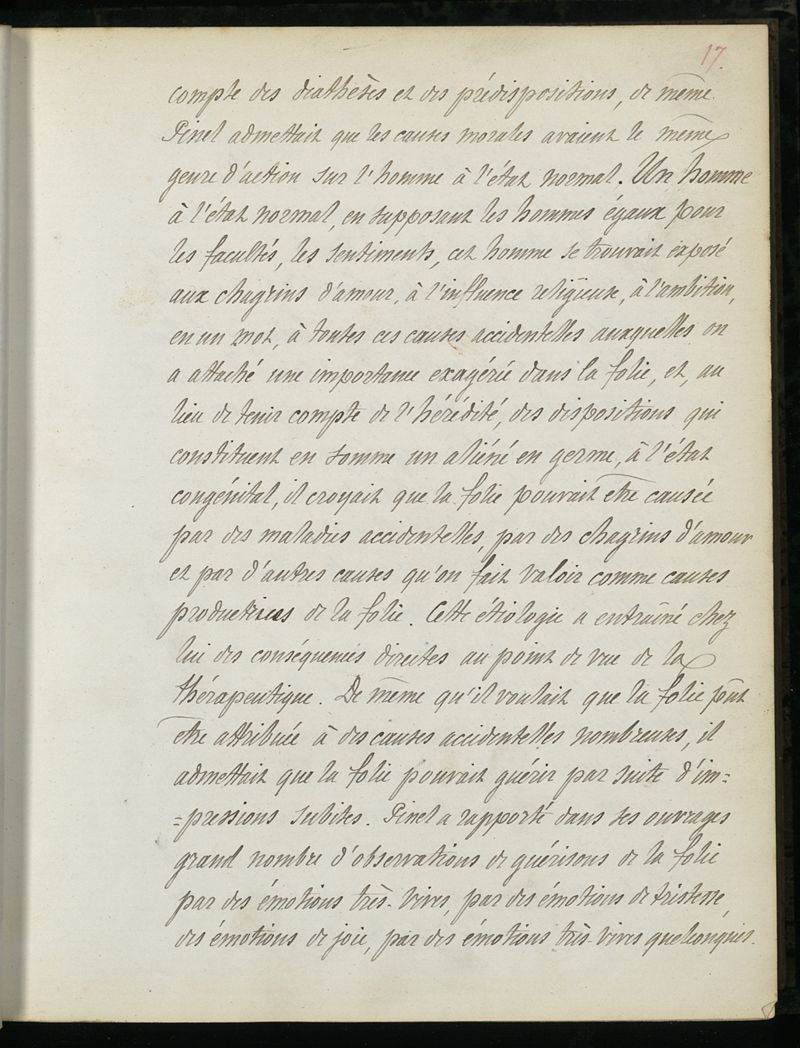 17.
compte des diathèses et des prédispositions, de même
Pinel admettait que les causes morales avaient le même
genre d'action sur l'homme à l'état normal. Un homme
à l'état normal, en supposant les hommes égaux pour
les facultés, les sentiments, cet homme se trouvait exposé
aux chagrins d'amour, à l'influence religieuse, à l'ambition,
en un mot, à toutes ces causes accidentelles auxquelles on
a attaché une importance exagérée dans la folie, et, au
lieu de tenir compte de l'hérédité, des dispositions qui
constituent en somme un aliéné en germe, à l'état
congénital, il croyait que la folie pouvait être causée
par des maladies accidentelles, par des chagrins d'amour
et par d'autres causes qu'on fait valoir comme causes
productrices de la folie. Cette étiologie a entraîné chez
lui des conséquences directes au point de vue de la
thérapeutique. De même qu'il voulait que la folie pût
être attribuée à des causes accidentelles nombreuses, il
admettait que la folie pouvait guérir par suite d'im=
=pressions subites. Pinel a rapporté dans ses ouvrages
grand nombre d'observations de guérisons de la folie
par des émotions très-vives, par des émotions de tristesse,
des émotions de joie, par des émotions très-vives quelconques.